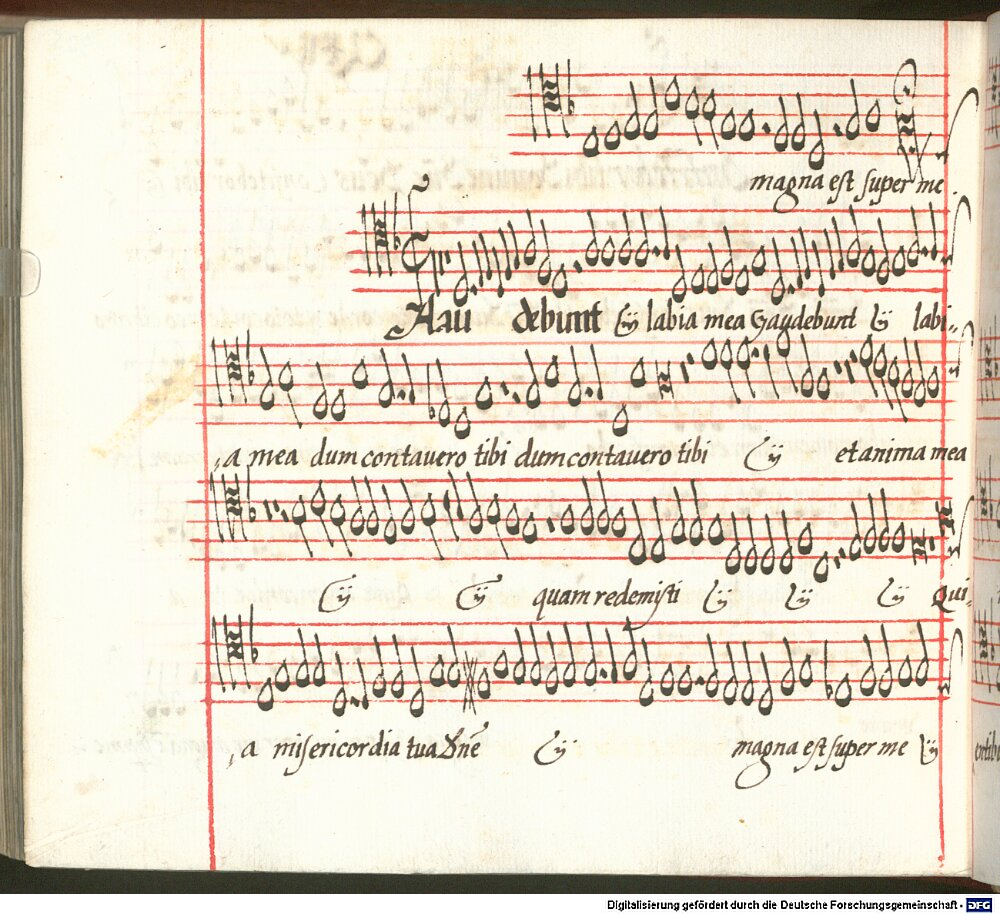 magna est super me
Gaudebunt ij labia mea Gaudebunt ij labi-
a mea dum contavero tibi dum contavero tibi ij et anima mea
ij ij quam redemisti ij ij ij Qui-
a misericordia tua Dñe ij magna est super me ij
Digitalisierung gefördert durch die Deutsche Forschungsgemeinschaft - DFG